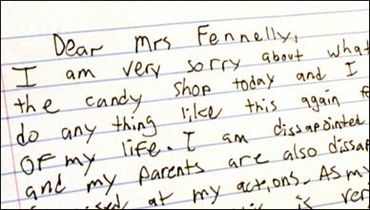 Dear Mrs Fennelly,
I am very sorry about what
the candy shop today and I
do any thing like this again
OF my life. I am dissapointed
and my parents are also dissap
at my actions. As my
is